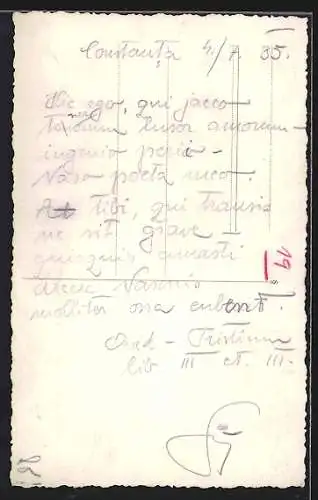 Constanța 4./7. 35.
Hic ego, qui jaceo
tenerum lusor amorum -
ingenio perii -
Naso poeta meo.
At tibi, qui transis
ne sit grave
quisquis amasti
dicere Nasonis
molliter ossa cubent.
Ovid - Tristium
lib III et. III.
19